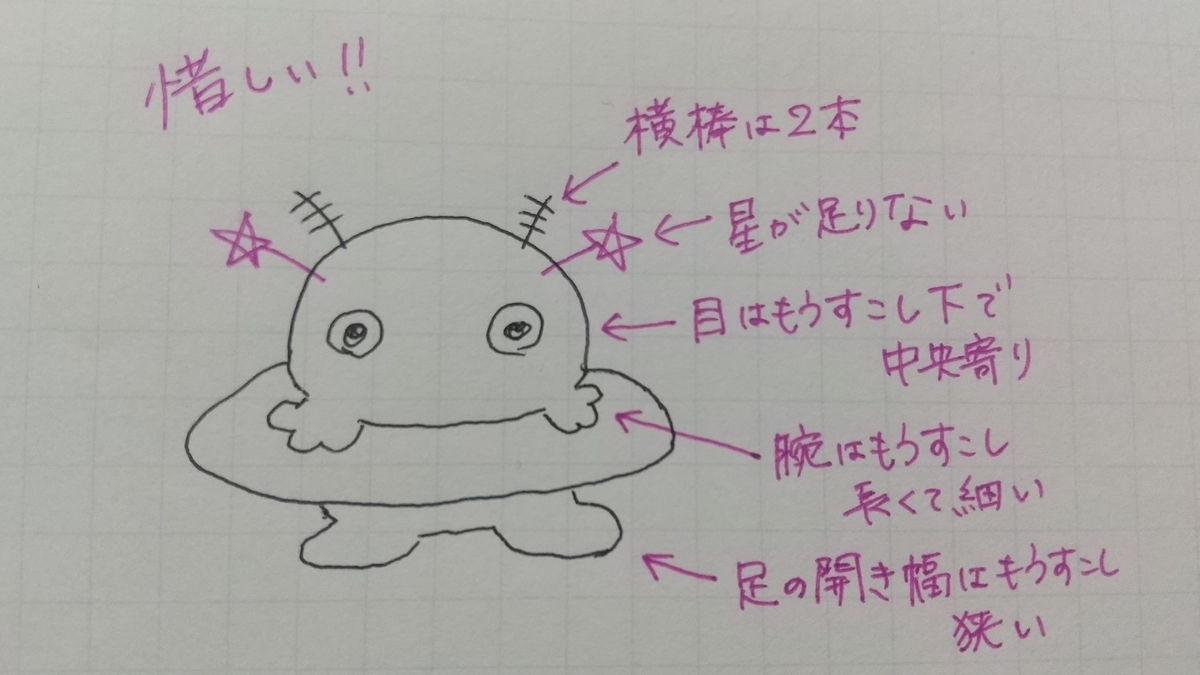 惜しい!!
横棒は2本
星が足りない
目はもうすこし下で
中央寄り
腕はもうすこし
長くて細い
足の開き幅はもうすこし
狭い